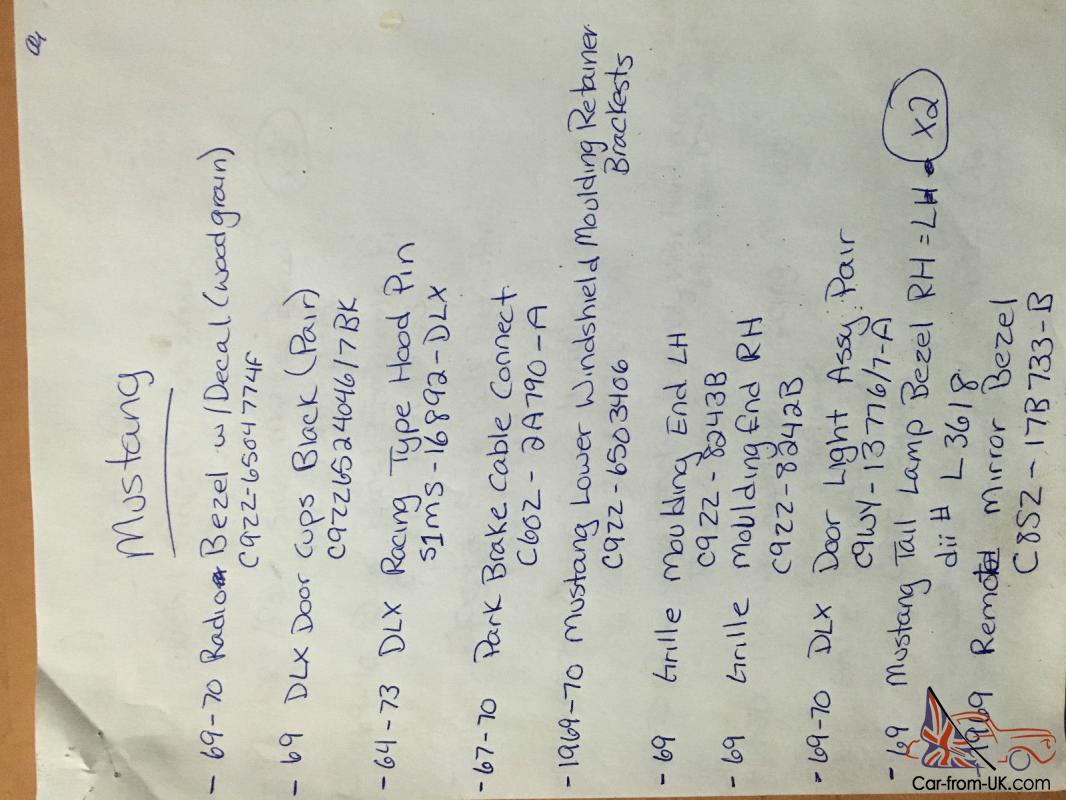 Mustang
- 69-70 Radio Bezel w/Decal (woodgrain)
C9ZZ-6504774F
- 69 DLX Door Cups Black (Pair)
C9ZZ6524046/7BK
- 64-73 DLX Racing Type Hood Pin
S1MS-16892-DLX
- 67-70 Park Brake Cable Connect
C60Z-2A790-A
- 1969-70 Mustang Lower Windshield Moulding Retainer
Brackests
C9ZZ-6503406
- 69 Grille Moulding End LH
C9ZZ-8243B
- 69 Grille Moulding End RH
C9ZZ-8242B
- 69-70 DLX Door Light Assy Pair
C9WY-13776/7-A
- 69 Mustang Tail Lamp Bezel RH = LH x2
dii # L3618
- 1969 Remote Mirror Bezel
C85Z-17B733-B
Car-from-UK.com